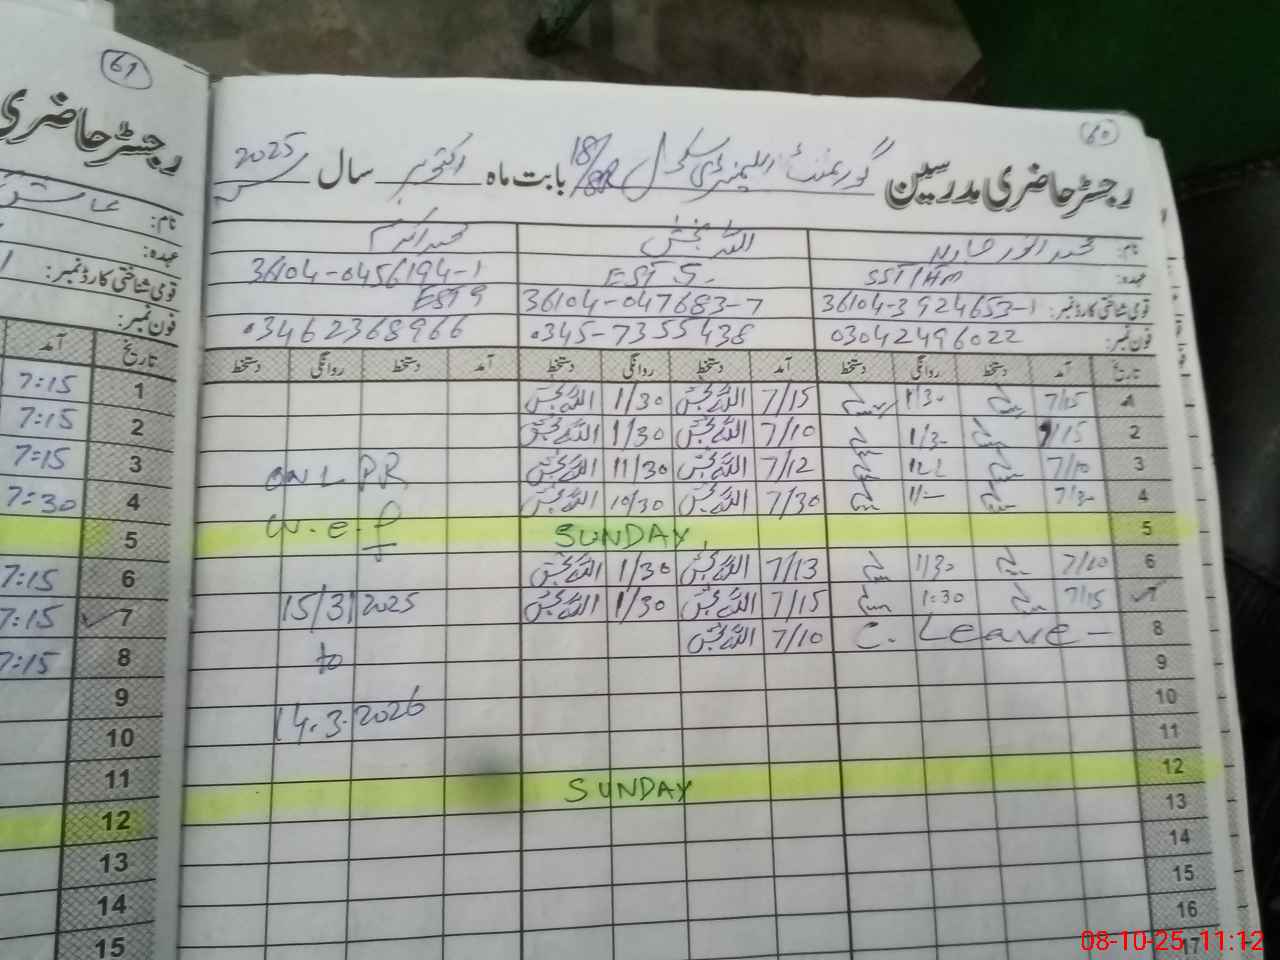 61
رجسٹر حاضری
نام:
عہدہ:
قومی شناختی کارڈ نمبر:
فون نمبر:
تاریخ آمد
1 7:15
2 7:15
3 7:15
4 7:30
5
6 7:15
7 7:15
8 7:15
9
10
11
12
13
14
15
60
رجسٹر حاضری مدرسین گورنمنٹ ایلیمنٹری سکول 18/8R بابت ماہ اکتوبر سال 2025
نام: محمد انور اللہ بخش محمد اکرم
عہدہ: SST/HM EST S. 36104-0456194-1
قومی شناختی کارڈ نمبر: 36104-3924653-1 36104-047683-7 EST 9
فون نمبر: 03042496022 0345-7355438 03462368966
تاریخ آمد دستخط روانگی دستخط آمد دستخط روانگی دستخط آمد دستخط روانگی دستخط
1 7/15 1/30 7/15 اللہ بخش 1/30 اللہ بخش
2 7/15 1/30 7/10 اللہ بخش 1/30 اللہ بخش
3 7/10 7/12 اللہ بخش 11/30 اللہ بخش ON LPR
4 7/30 7/30 اللہ بخش 10/30 اللہ بخش
5 SUNDAY w.e.f
6 7/10 1/30 7/13 اللہ بخش 1/30 اللہ بخش
7 7/15 1:30 7/15 اللہ بخش 1/30 اللہ بخش 15/3/2025
8 C. Leave - 7/10 اللہ بخش
to
9
10
14.3.2026
11
12 SUNDAY
13
14
15
16
17
08-10-25 11:12